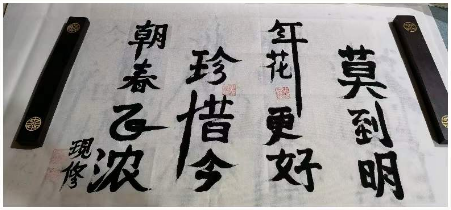 莫到明
年花更好
珍惜今
朝春正浓
现修